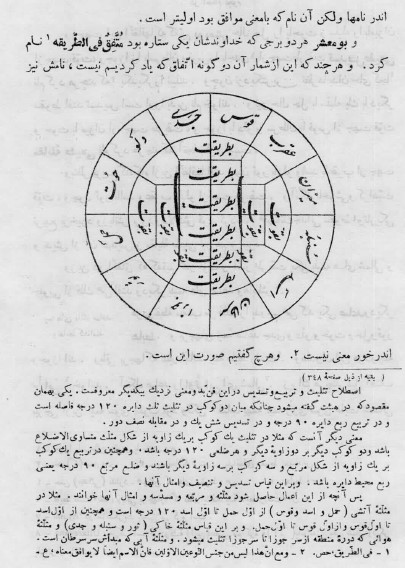 اندر نامها ولکن آن نام که بامعنی موافق بود اولیتر است .
و بومعشر هر دو برجی که خداوندشان یکی ستاره بود متّفق فی الطّریقه ۱ نام
کرد . و هر چند که این از شمار آن دو گونه اتّفاق که یاد کردیم نیست ، نامش نیز
قوس
جدی
دلو
حوت
حمل
ثور
جوزا
سرطان
اسد
سنبله
میزان
عقرب
بطریقت
بطریقت
بطریقت
بطریقت
بطریقت
بطریقت
اندرخور معنی نیست ۲. وهرچ گفتیم صورت این است .
( بقیه از ذیل صفحهٔ ۳۴۸ )
اصطلاح تثلیث و تربیع و تسدیس در این فن بدو معنی نزدیک بیکدیگر معروفست . یکی بهمان
مقصود که در هیئت گفته میشود چنانکه میان دو کوکب در تثلیث ثلث دایره ۱۲۰ درجه فاصله است
و در تربیع ربع دایره ۹۰ درجه و در تسدیس شش یک و در مقابله نصف دور .
معنی دیگر آنست که مثلا در تثلیث یک کوکب بر یک زاویه از شکل مثلث متساوی الاضلاع
باشد و دو کوکب دیگر بر دو زاویهٔ دیگر و هر ضلعی ۱۲۰ درجه باشد ، و همچنین در تربیع یک کوکب
بر یک زاویه از شکل مربع و سه کوکب بر سه زاویهٔ دیگر باشند و ضلع مربع ۹۰ درجه یعنی
ربع محیط دایره باشد ، و بر این قیاس تسدیس و تنصیف و امثال آنها .
پس آنچه از این اعمال حاصل شود مثلثه و مربعه و مسدسه و امثال آنها خوانند . مثلا در
مثلثهٔ آتشی ( حمل و اسد و قوس ) از اوّل حمل تا اوّل اسد ۱۲۰ درجه است و همچنین از اوّل اسد
تا اول قوس و از اول قوس تا اوّل حمل. و بر این قیاس مثلثهٔ خاکی ( ثور و سنبله و جدی ) و مثلثهٔ
هوائی که دورهٔ منطقه از سر جوزا تا سر جوزا تثلیث میشود . و مثلثهٔ آبی که مبدأش سرسرطان است .
۱ - فی الطریق، حص . ۲ - ومع ان هذا لیس من جنس النوعین الاولین فان الاسم ایضا لا یوافق معناه ؛ ع ـ